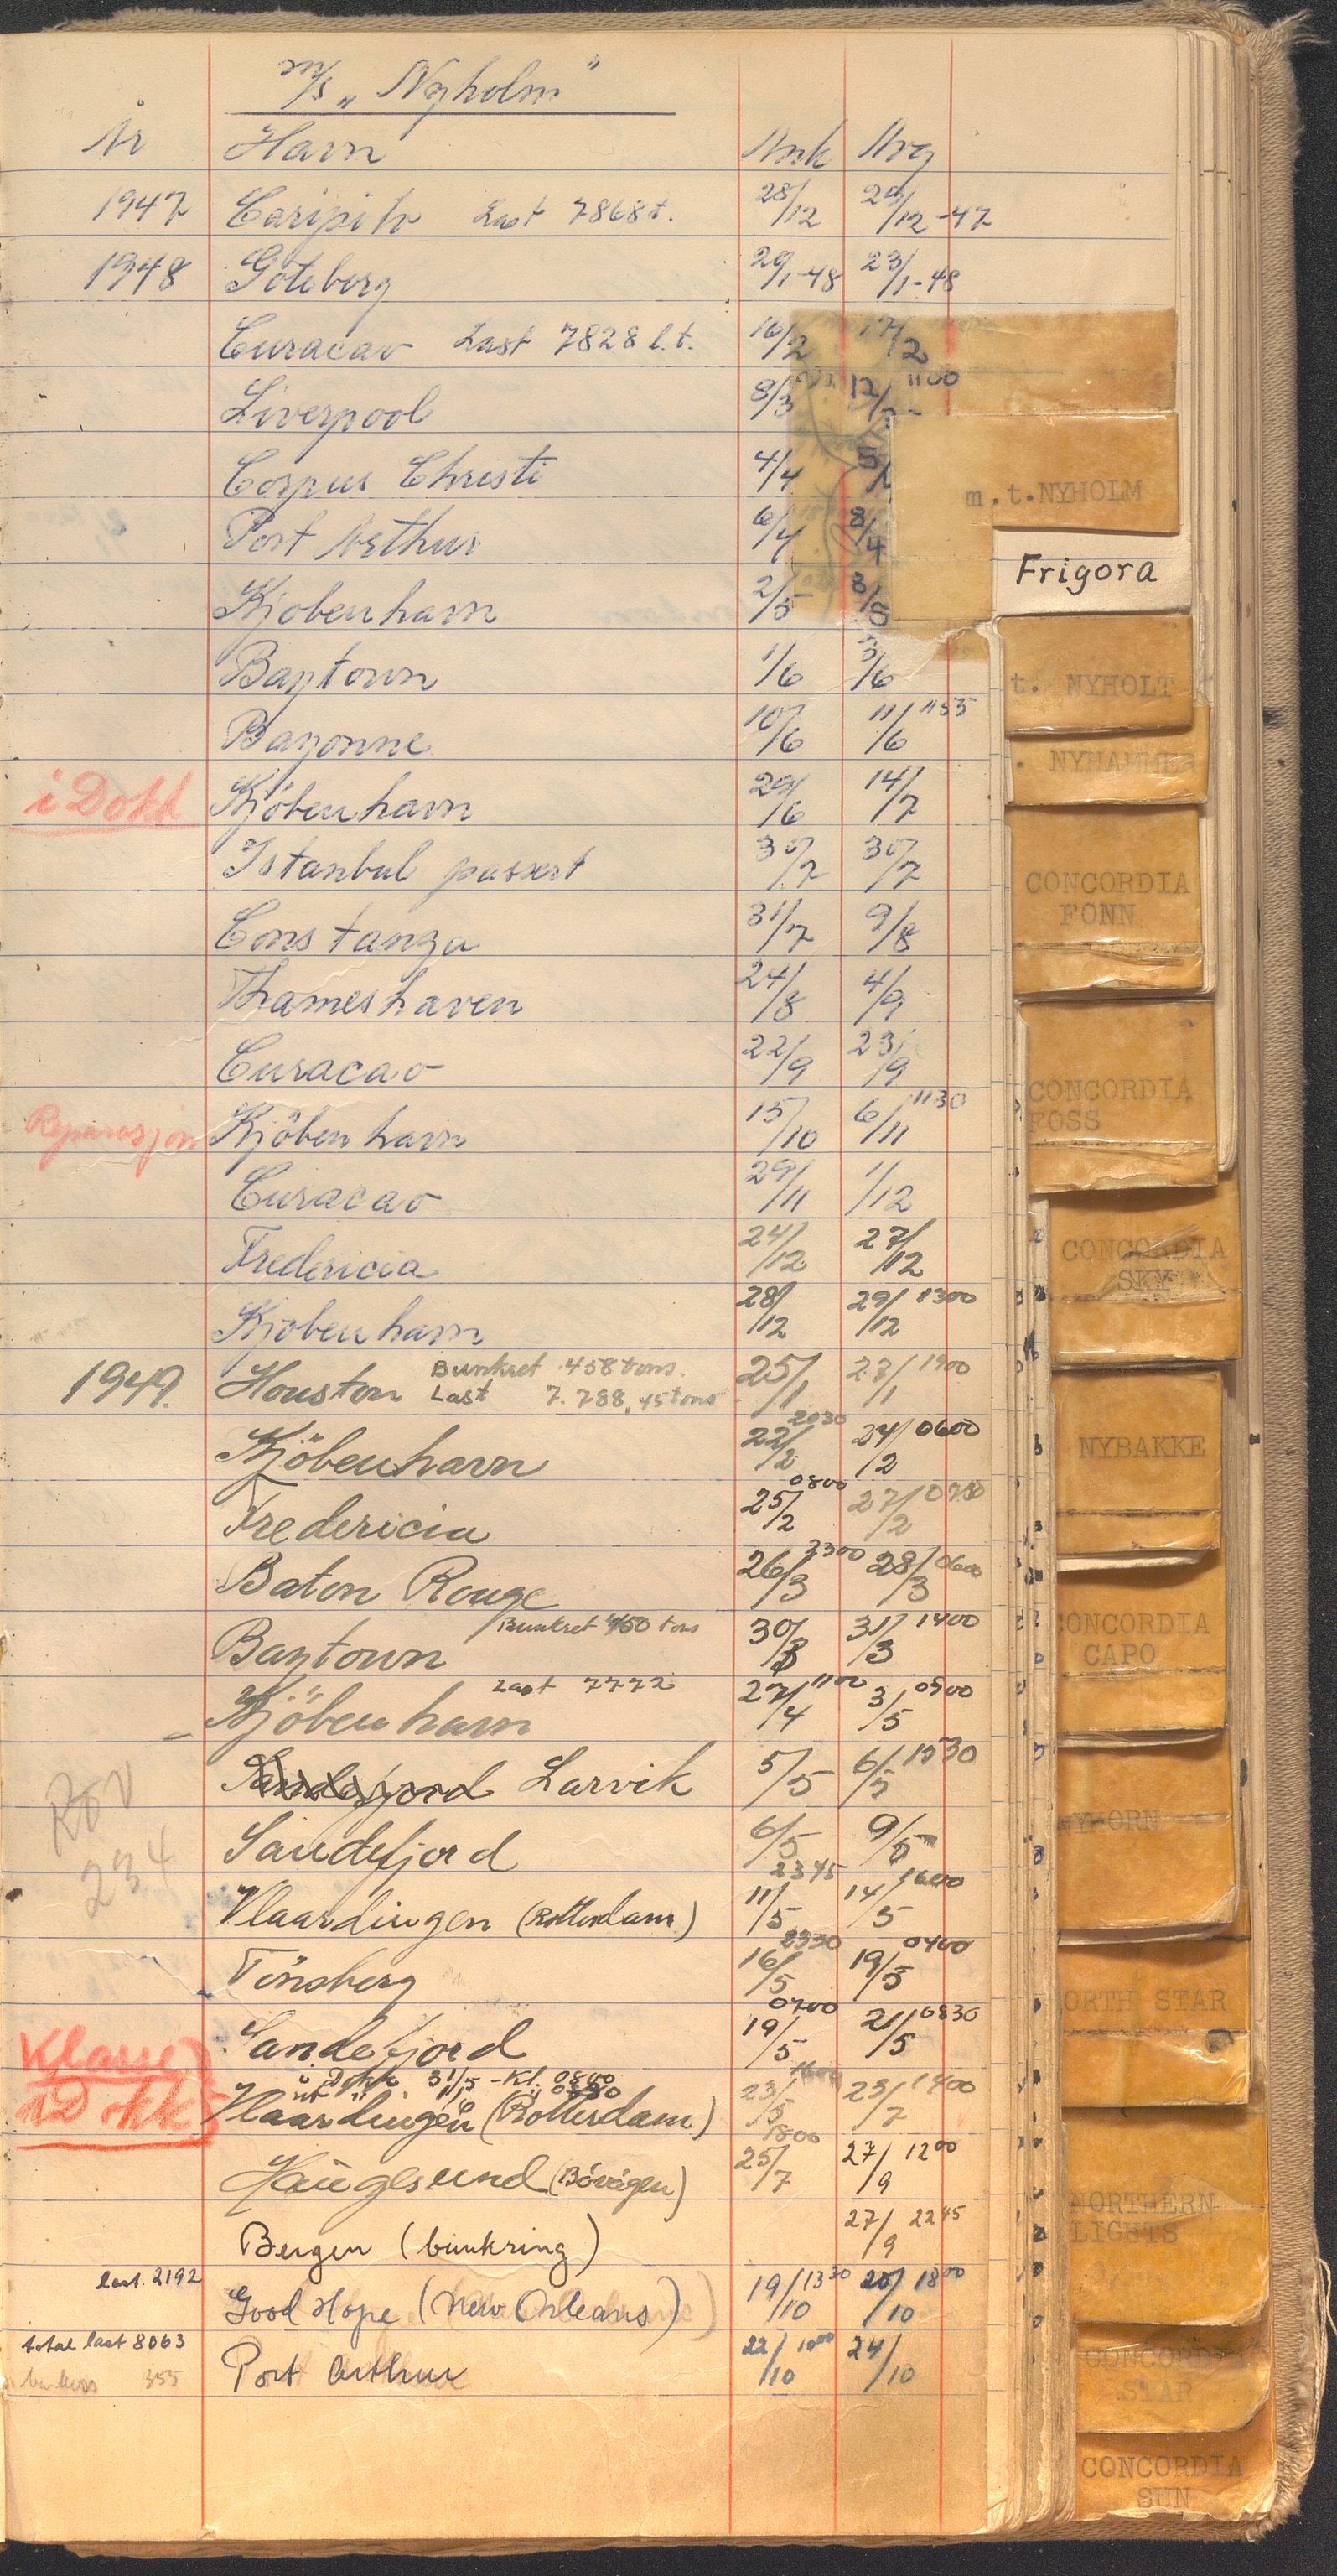 M/S „Nyholm"
År Havn Ank Avg
1947 Caripito Last 7868 t. 28/12 29/12-47
1948 Göteborg 29/1-48 23/1-48
Curacao Last 7828 l.t. 16/2 17/2
Liverpool 8/3 12/ 1100
Corpus Christi 4/4 5/
Port Arthur 6/4 8/4
Kjöbenhavn 2/5 8/5
Baytown 1/6 3/6
Bayonne 10/6 11/6 1155
i Dokk Kjöbenhavn 29/6 14/7
Istanbul passert 30/7 30/7
Constanza 31/7 9/8
Thameshaven 24/8 4/9
Curacao 22/9 23/9
Reparasjon Kjöbenhavn 15/10 6/11 1130
Curacao 29/11 1/12
Fredericia 24/12 27/12
Kjöbenhavn 28/12 29/12 1300
1949. Houston Bunkret 458 tons. Last 7.788,45 tons 25/1 28/1 1900
Kjöbenhavn 22/2 2030 24/2 0600
Fredericia 25/2 0800 27/2 0730
Baton Rouge 26/3 2300 28/3 0600
Baytown Bunkret 450 tons 30/3 31/3 1400
Kjöbenhavn Last 7772 27/4 1100 3/5 0900
Sandefjord Larvik 5/5 6/5 1530
Sandefjord 6/5 9/5
Vlaardingen (Rotterdam) 11/5 2345 14/5 1600
Tönsberg 16/5 2330 19/5 0400
Sandefjord 19/5 0700 21/5 0830
Klasse i Dokk
i Dokk 31/5 - Kl. 0800
ut " 1/6 " 0830
Vlaardingen (Rotterdam) 23/5 23/7 1400
Haugesund (Bövågen) 25/7 1800 27/9 1200
Bergen (bunkring) 27/9 2245
last. 2192 Good Hope (New Orleans) 19/10 1330 20/10 1800
total last 8063 Port Arthur 22/10 1000 24/10
bunkers 355
234
m.t. NYHOLM
Frigora
t. NYHOLT
NYHAMMER
CONCORDIA
FONN
CONCORDIA
FOSS
CONCORDIA
SKY
NYBAKKE
CONCORDIA
CAPO
NYHORN
NORTH STAR
NORTHERN
LIGHTS
CONCORDIA
STAR
CONCORDIA
SUN